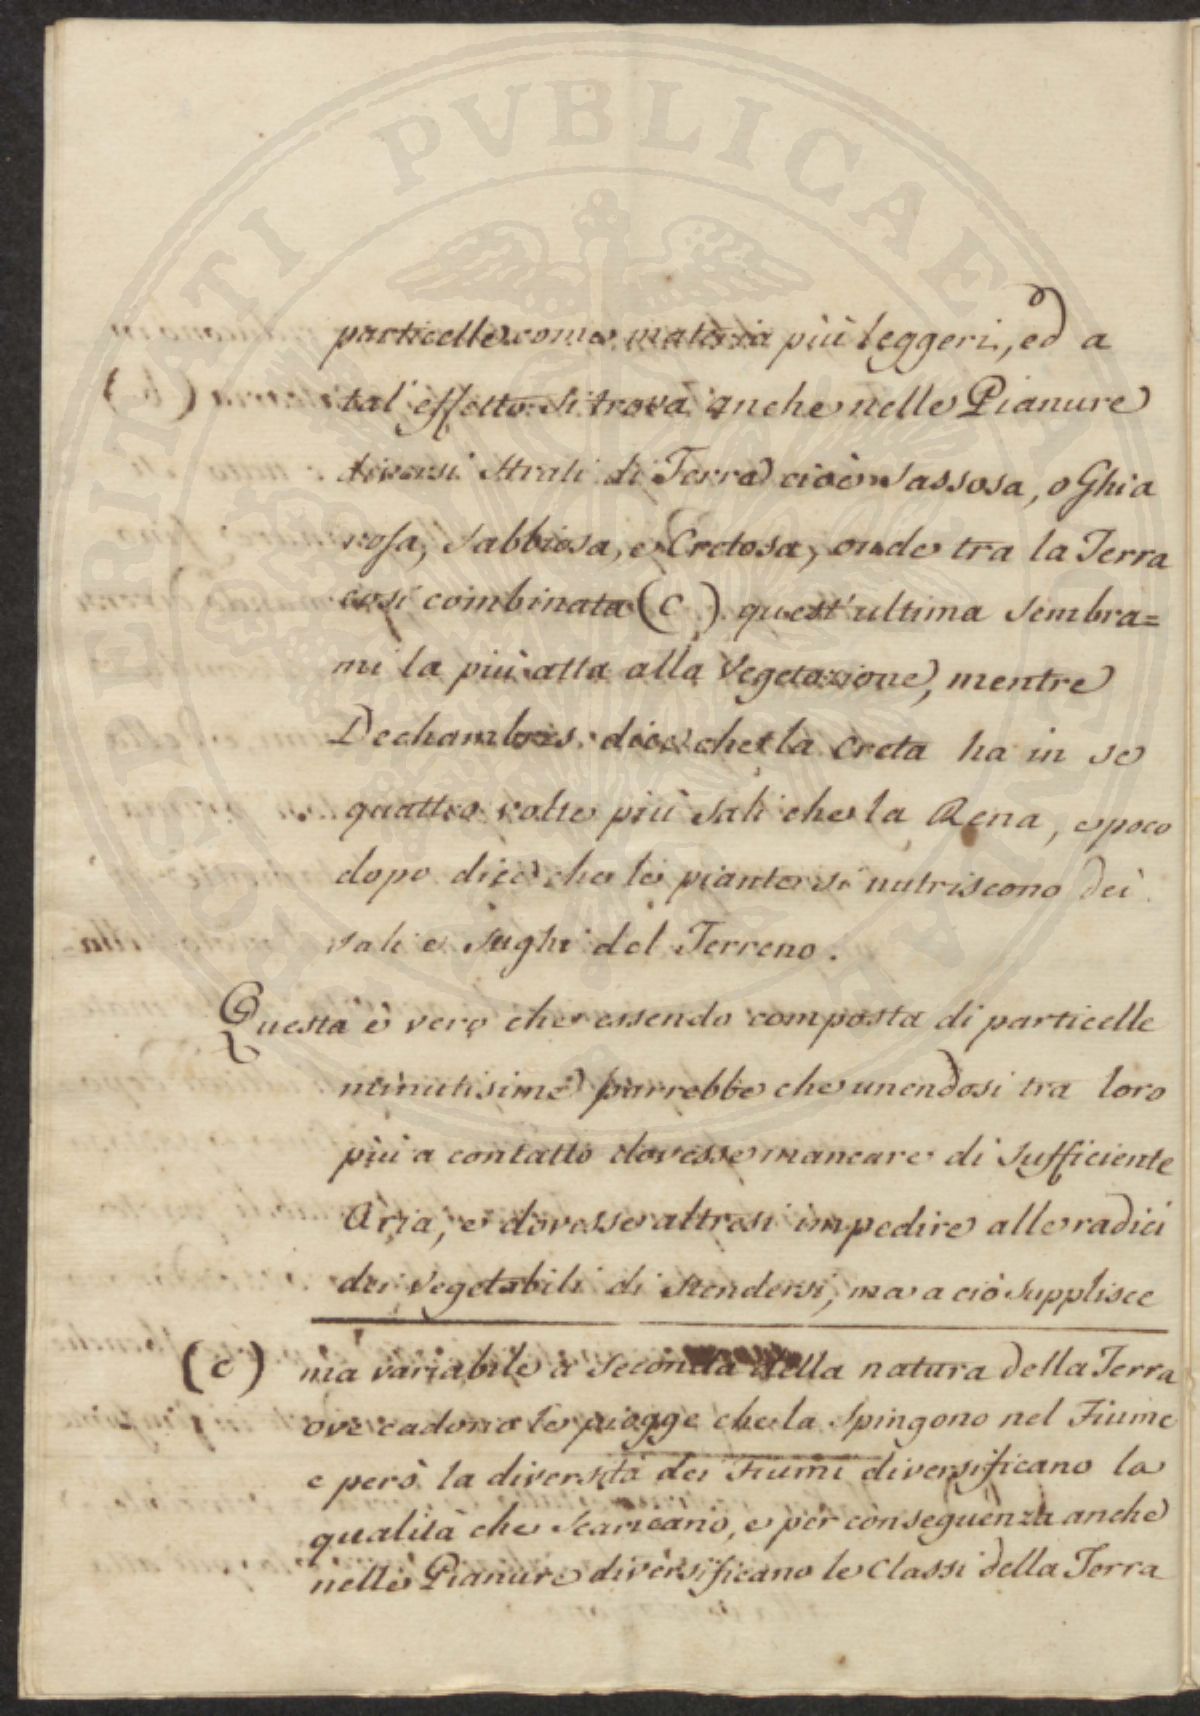 particelle come materia più leggeri, ed a
tal'effetto si trova anche nelle Pianure
diversi Strati di Terra cioè Sassosa, o Ghia
rosa, Sabbiosa, e Cretosa, onde tra la Terra
così combinata (C) quest'ultima sembra=
mi la più atta alla Vegetazione, mentre
Dechambris dice che la Creta ha in se
quattro volte più Sali che la Rena, e poco
dopo dice che le piante si nutriscono dei
sali e Sughi del Terreno.
Questa è vero che essendo composta di particelle
minutisime parrebbe che unendosi tra loro
più a contatto dovesse mancare di Sufficiente
Aria, e dovesse altresi impedire alle radici
dei Vegetabili di Stendersi, ma a ciò Supplisce
(C) ma variabile a Seconda della natura della Terra
ove cadono le piogge che la Spingono nel Fiume
e però la diversità dei Fiumi diversificano la
qualità che Scaricano, e per conseguenza anche
nelle Pianure diversificano le Classi della Terra